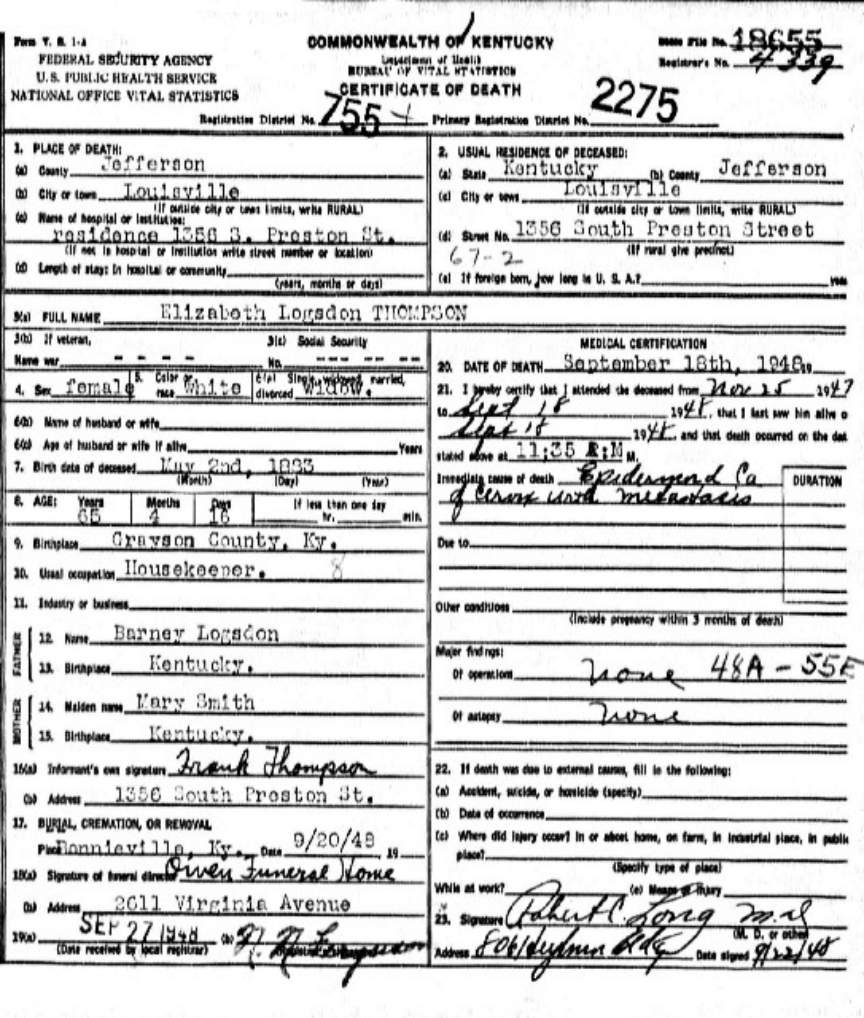 Form V. S. 1-A
FEDERAL SECURITY AGENCY
U.S. PUBLIC HEALTH SERVICE
NATIONAL OFFICE VITAL STATISTICS
COMMONWEALTH OF KENTUCKY
Department of Health
BUREAU OF VITAL STATISTICS
CERTIFICATE OF DEATH
File No. 18655
Registrar's No. 4339
Registration District No. 755 Primary Registration District No. 2275
1. PLACE OF DEATH:
(a) County Jefferson
(b) City or town Louisville
(If outside city or town limits, write RURAL)
(c) Name of hospital or institution:
residence 1356 S. Preston St.
(If not in hospital or institution write street number or location)
(d) Length of stay: In hospital or community
(years, months or days)
2. USUAL RESIDENCE OF DECEASED:
(a) State Kentucky (b) County Jefferson
(c) City or town Louisville
(If outside city or town limits, write RURAL)
(d) Street No. 1356 South Preston Street
(If rural give precinct)
67-2
(e) If foreign born, how long in U. S. A.? years
3(a) FULL NAME Elizabeth Logsdon THOMPSON
3(b) If veteran, 3(c) Social Security
Name war - - - - No. --- -- ----
4. Sex female 5. Color or race White 6(a) Single, widowed, married, divorced Widow.
6(b) Name of husband or wife
6(c) Age of husband or wife if alive Years
7. Birth date of deceased May 2nd, 1883
(Month) (Day) (Year)
8. AGE: Years Months Days If less than one day
65 4 16 hr. min.
9. Birthplace Grayson County, Ky.
10. Usual occupation Housekeeper. 8
11. Industry or business
FATHER
12. Name Barney Logsdon
13. Birthplace Kentucky.
MOTHER
14. Maiden name Mary Smith
15. Birthplace Kentucky.
16(a) Informant's own signature Frank Thompson
(b) Address 1356 South Preston St.
17. BURIAL, CREMATION, OR REMOVAL
Place Bonnieville, Ky. Date 9/20/48 19
18(a) Signature of funeral director Owen Funeral Home
(b) Address 2611 Virginia Avenue
19(a) SEP 27 1948 (b)
(Date received by local registrar)
MEDICAL CERTIFICATION
20. DATE OF DEATH September 18th, 1948 19
21. I hereby certify that I attended the deceased from Nov 25 1947
to Sept 18 1948, that I last saw him alive o
Sept 18 1948, and that death occurred on the dat
stated above at 11:35 P:M M.
Immediate cause of death Epidermoid Ca
of Cervix with metastasis
DURATION
Due to
Other conditions
(Include pregnancy within 3 months of death)
Major findings:
Of operations none 48A - 55E
Of autopsy none
22. If death was due to external causes, fill in the following:
(a) Accident, suicide, or homicide (specify)
(b) Date of occurrence
(c) Where did injury occur? In or about home, on farm, in industrial place, in public
place?
(Specify type of place)
While at work? (e) Means of Injury
23. Signature Robert C. Long M.D.
(M. D. or other)
Address 806 Heyburn Bldg Date signed 9/22/48